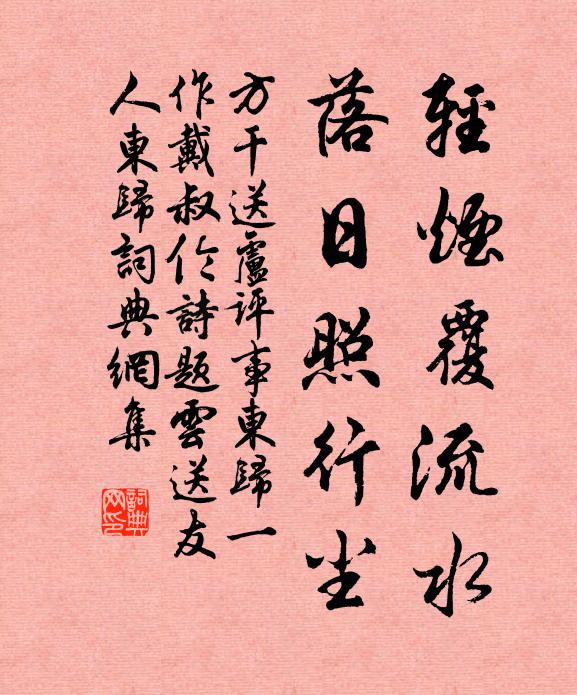 輕煙覆流水
落日照行尘
方干送盧评事東歸一
作戴叔伦詩题雲送友
人東歸詞典網集
詞典网印